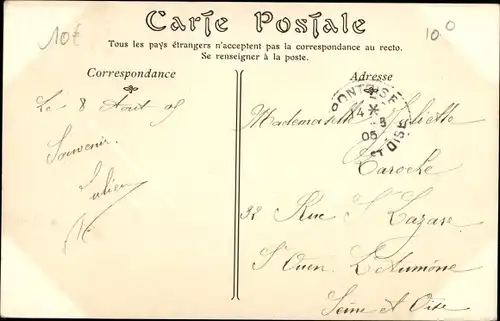 10€
10°
Carte Postale
Tous les pays étrangers n'acceptent pas la correspondance au recto.
Se renseigner à la poste.
Correspondance
Adresse
Le 8 Août 05
Souvenir
Julien
PONTOISE
14 * -8
05
ET OISE
Mademoiselle Juliette
Laroche
32 Rue St Lazare
St Ouen L'Aumône
Seine et Oise